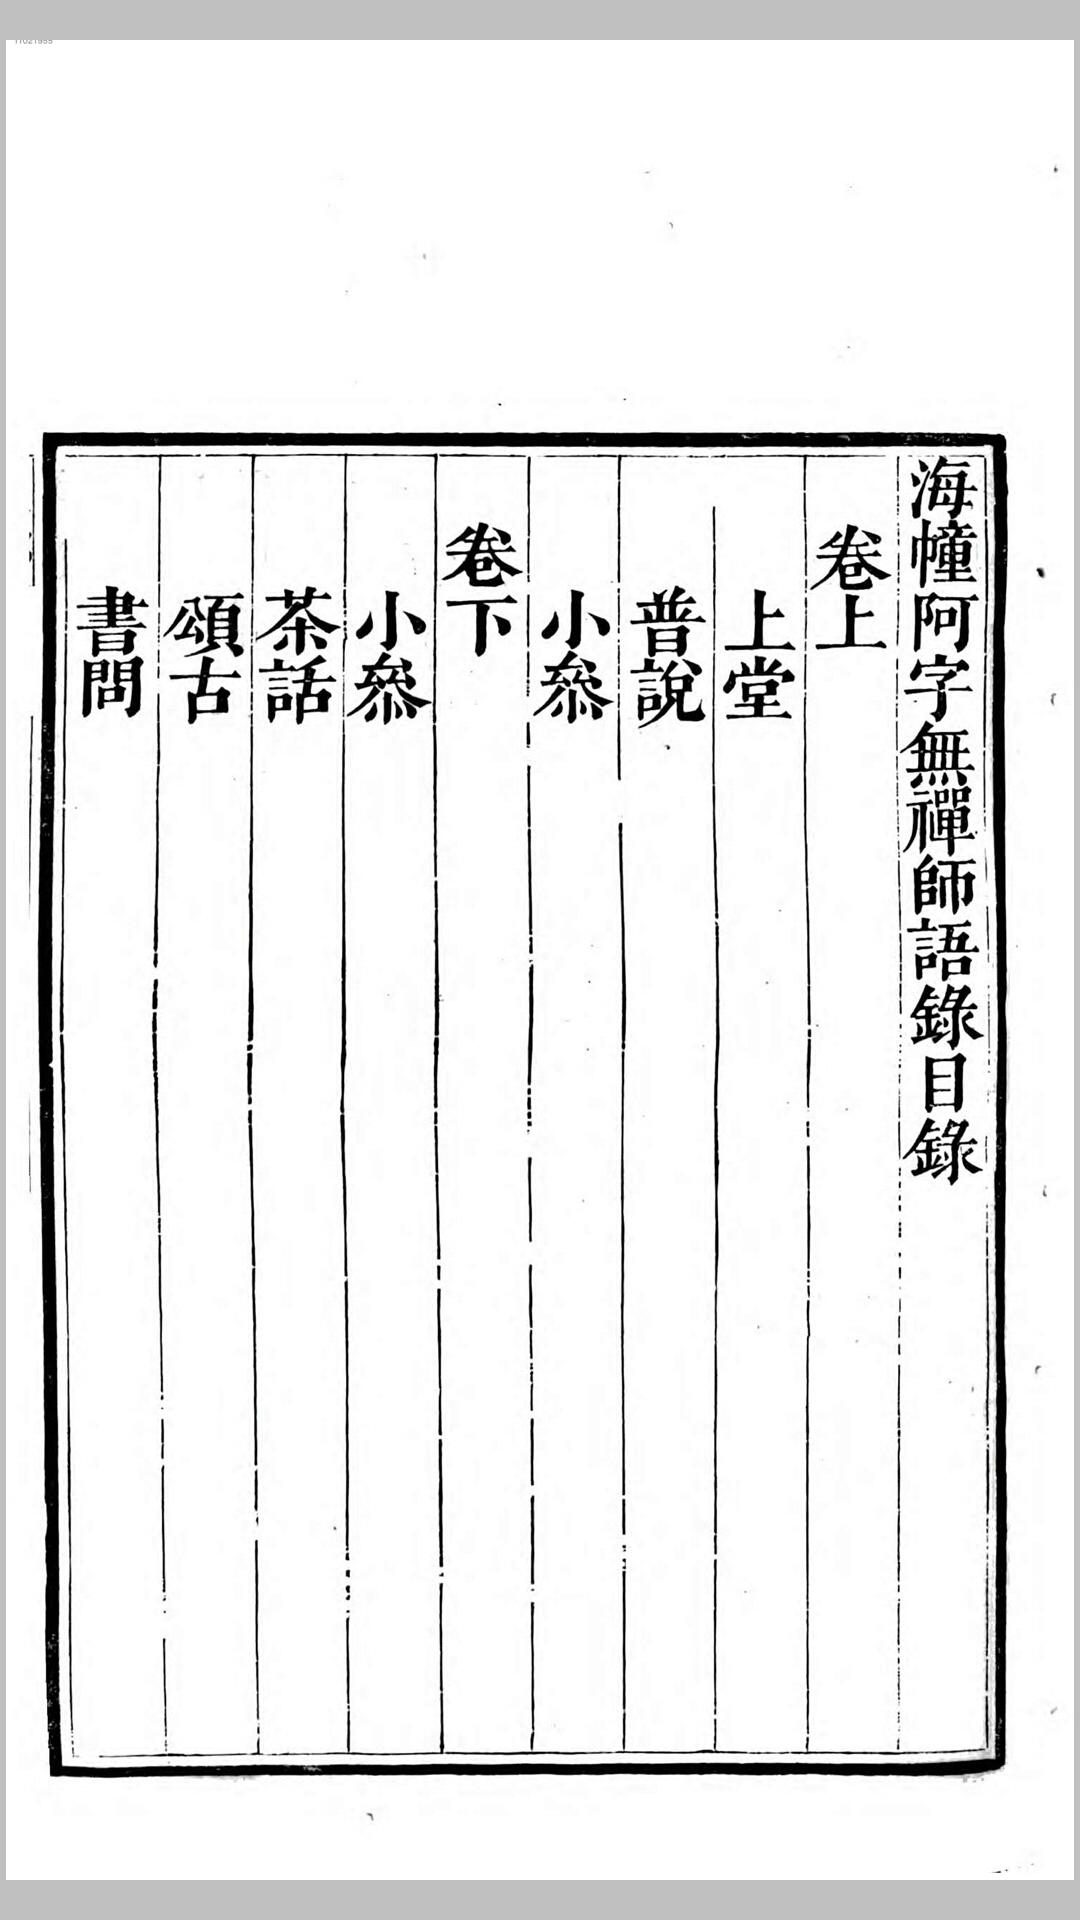 海幢阿字無禪師語錄目錄
卷上
上堂
普說
小叅
卷下
小叅
茶話
頌古
書問